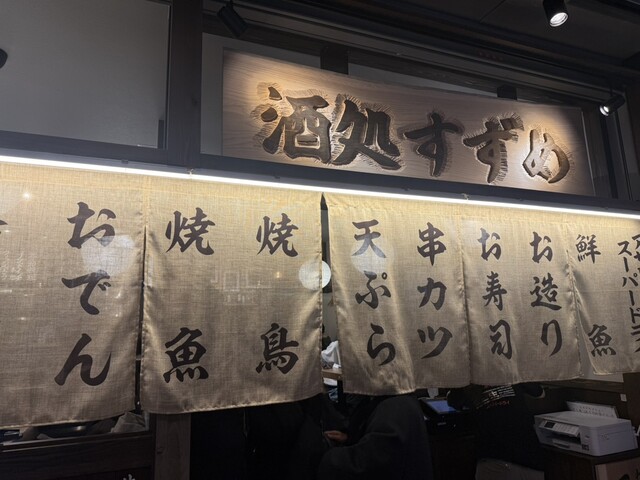 酒処すずめ
スーパードラ
鮮魚
お造り
お寿司
串カツ
天ぷら
焼鳥
焼魚
おでん